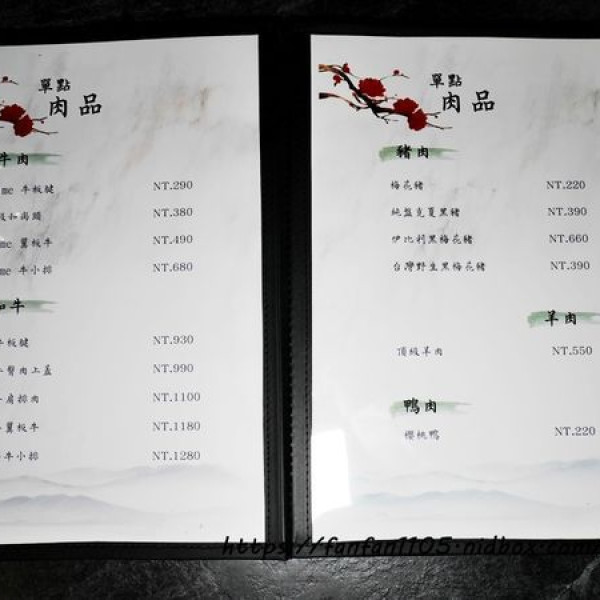 單點
肉品
牛肉
me 牛板腱 NT.290
級和尚頭 NT.380
me 翼板牛 NT.490
me 牛小排 NT.680
和牛
牛板腱 NT.930
牛臀肉上蓋 NT.990
牛肩排肉 NT.1100
牛翼板牛 NT.1180
牛牛小排 NT.1280
單點
肉品
豬肉
梅花豬 NT.220
純盤克夏黑豬 NT.390
伊比利黑梅花豬 NT.660
台灣野生黑梅花豬 NT.390
羊肉
頂級羊肉 NT.550
鴨肉
櫻桃鴨 NT.220
https://fanfan1105.nidbox.com